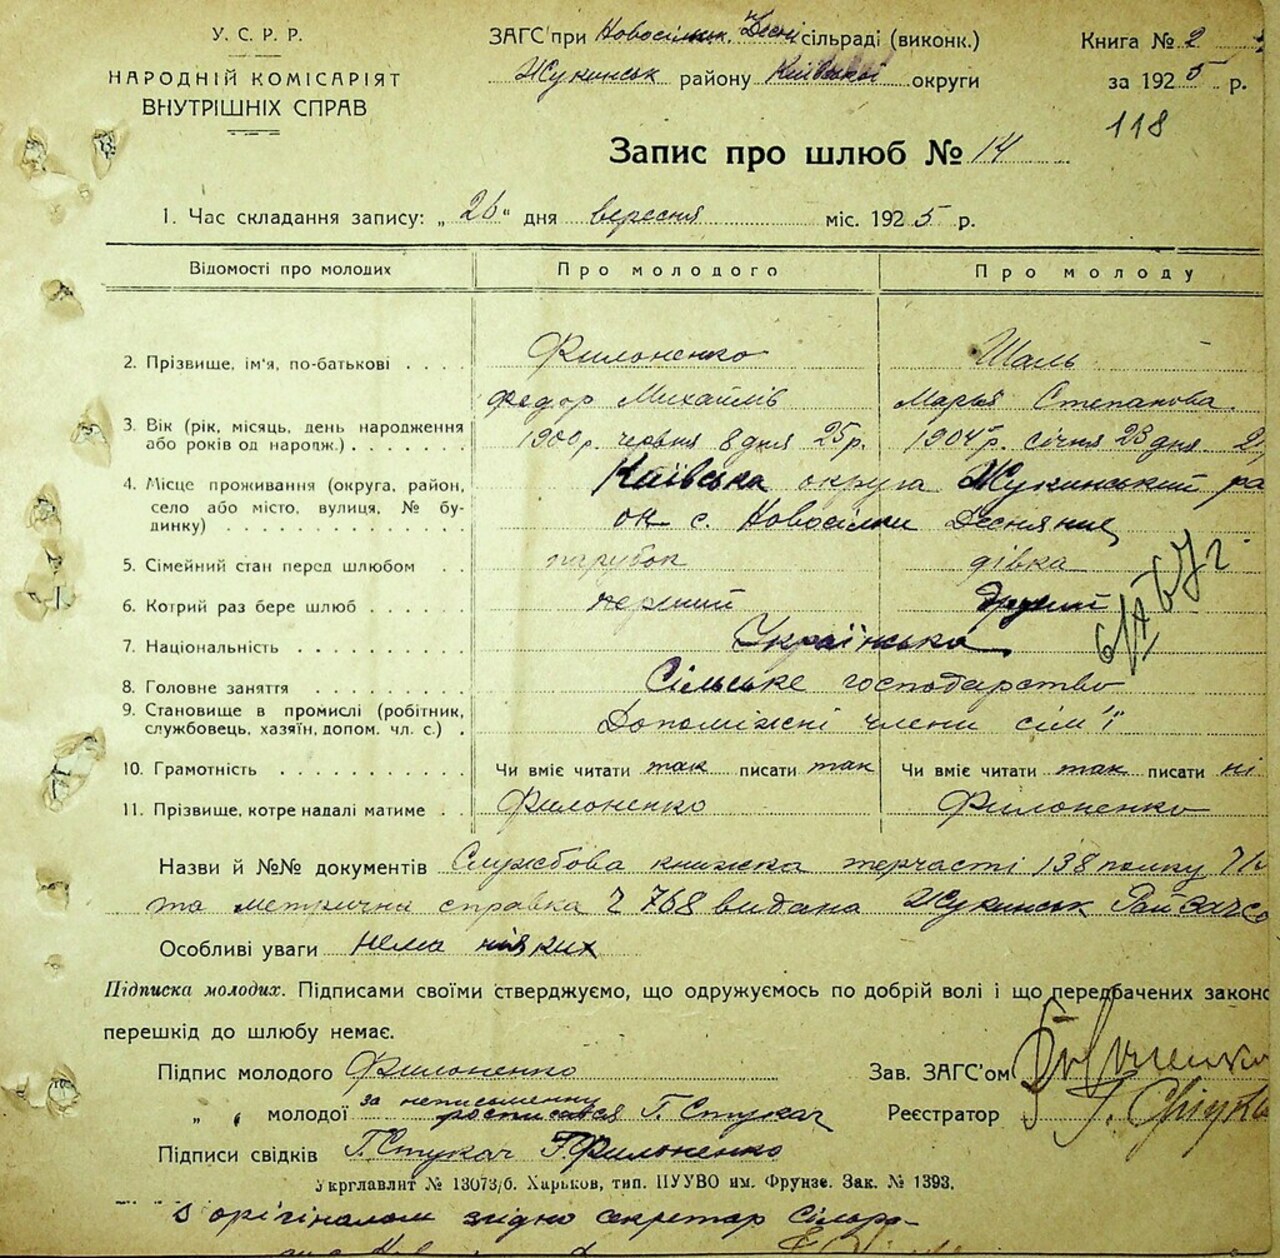 У. С. Р. Р.
НАРОДНІЙ КОМІСАРІЯТ
ВНУТРІШНІХ СПРАВ
ЗАГС при Новосілк. Десн. сільраді (виконк.)
Жукинськ району Київської округи
Книга № 2
за 1925 р.
118
Запис про шлюб № 14
1. Час складання запису: „26“ дня вересня міс. 1925 р.
Відомості про молодих Про молодого Про молоду
2. Прізвище, ім'я, по-батькові . . . . Филоненко Шаль
Федор Михайлів Марья Степанова.
3. Вік (рік, місяць, день народження або років од народж.) . . . . . . . 1900 р. червня 8 дня 25 р. 1904 р. січня 23 дня
4. Місце проживання (округа, район, село або місто, вулиця, № будинку) Київська округа Жукинський ра
он с. Новосілки Деснянні
5. Сімейний стан перед шлюбом . . парубок дівка
6. Котрий раз бере шлюб . . . . . перший другий
7. Національність . . . . . . . . . Українська
8. Головне заняття . . . . . . . . Сільське господарство
9. Становище в промислі (робітник, службовець, хазяїн, допом. чл. с.) . Допоміжні члени сім'ї
10. Грамотність . . . . . . . . . . Чи вміє читати так писати так Чи вміє читати так писати ні
11. Прізвище, котре надалі матиме . . Филоненко Филоненко
Назви й №№ документів Службова книжка терчасті 138 полку
та метрична справка Ч 768 видана Жукинськ Рай Загсо
Особливі уваги нема ніяких
Підписка молодих. Підписами своїми стверджуємо, що одружуємось по добрій волі і що передбачених законо
перешкід до шлюбу немає.
Підпис молодого Филоненко Зав. ЗАГС'ом
„ „ молодої за неписьменну росписався Г. Стукач Реєстратор
Підписи свідків Г. Стукач Г. Филоненко
Укрглавлит № 13073/б. Харьков, тип. ПУУВО им. Фрунзе. Зак. № 1393.
З орігіналом згідно секретар Сільра-